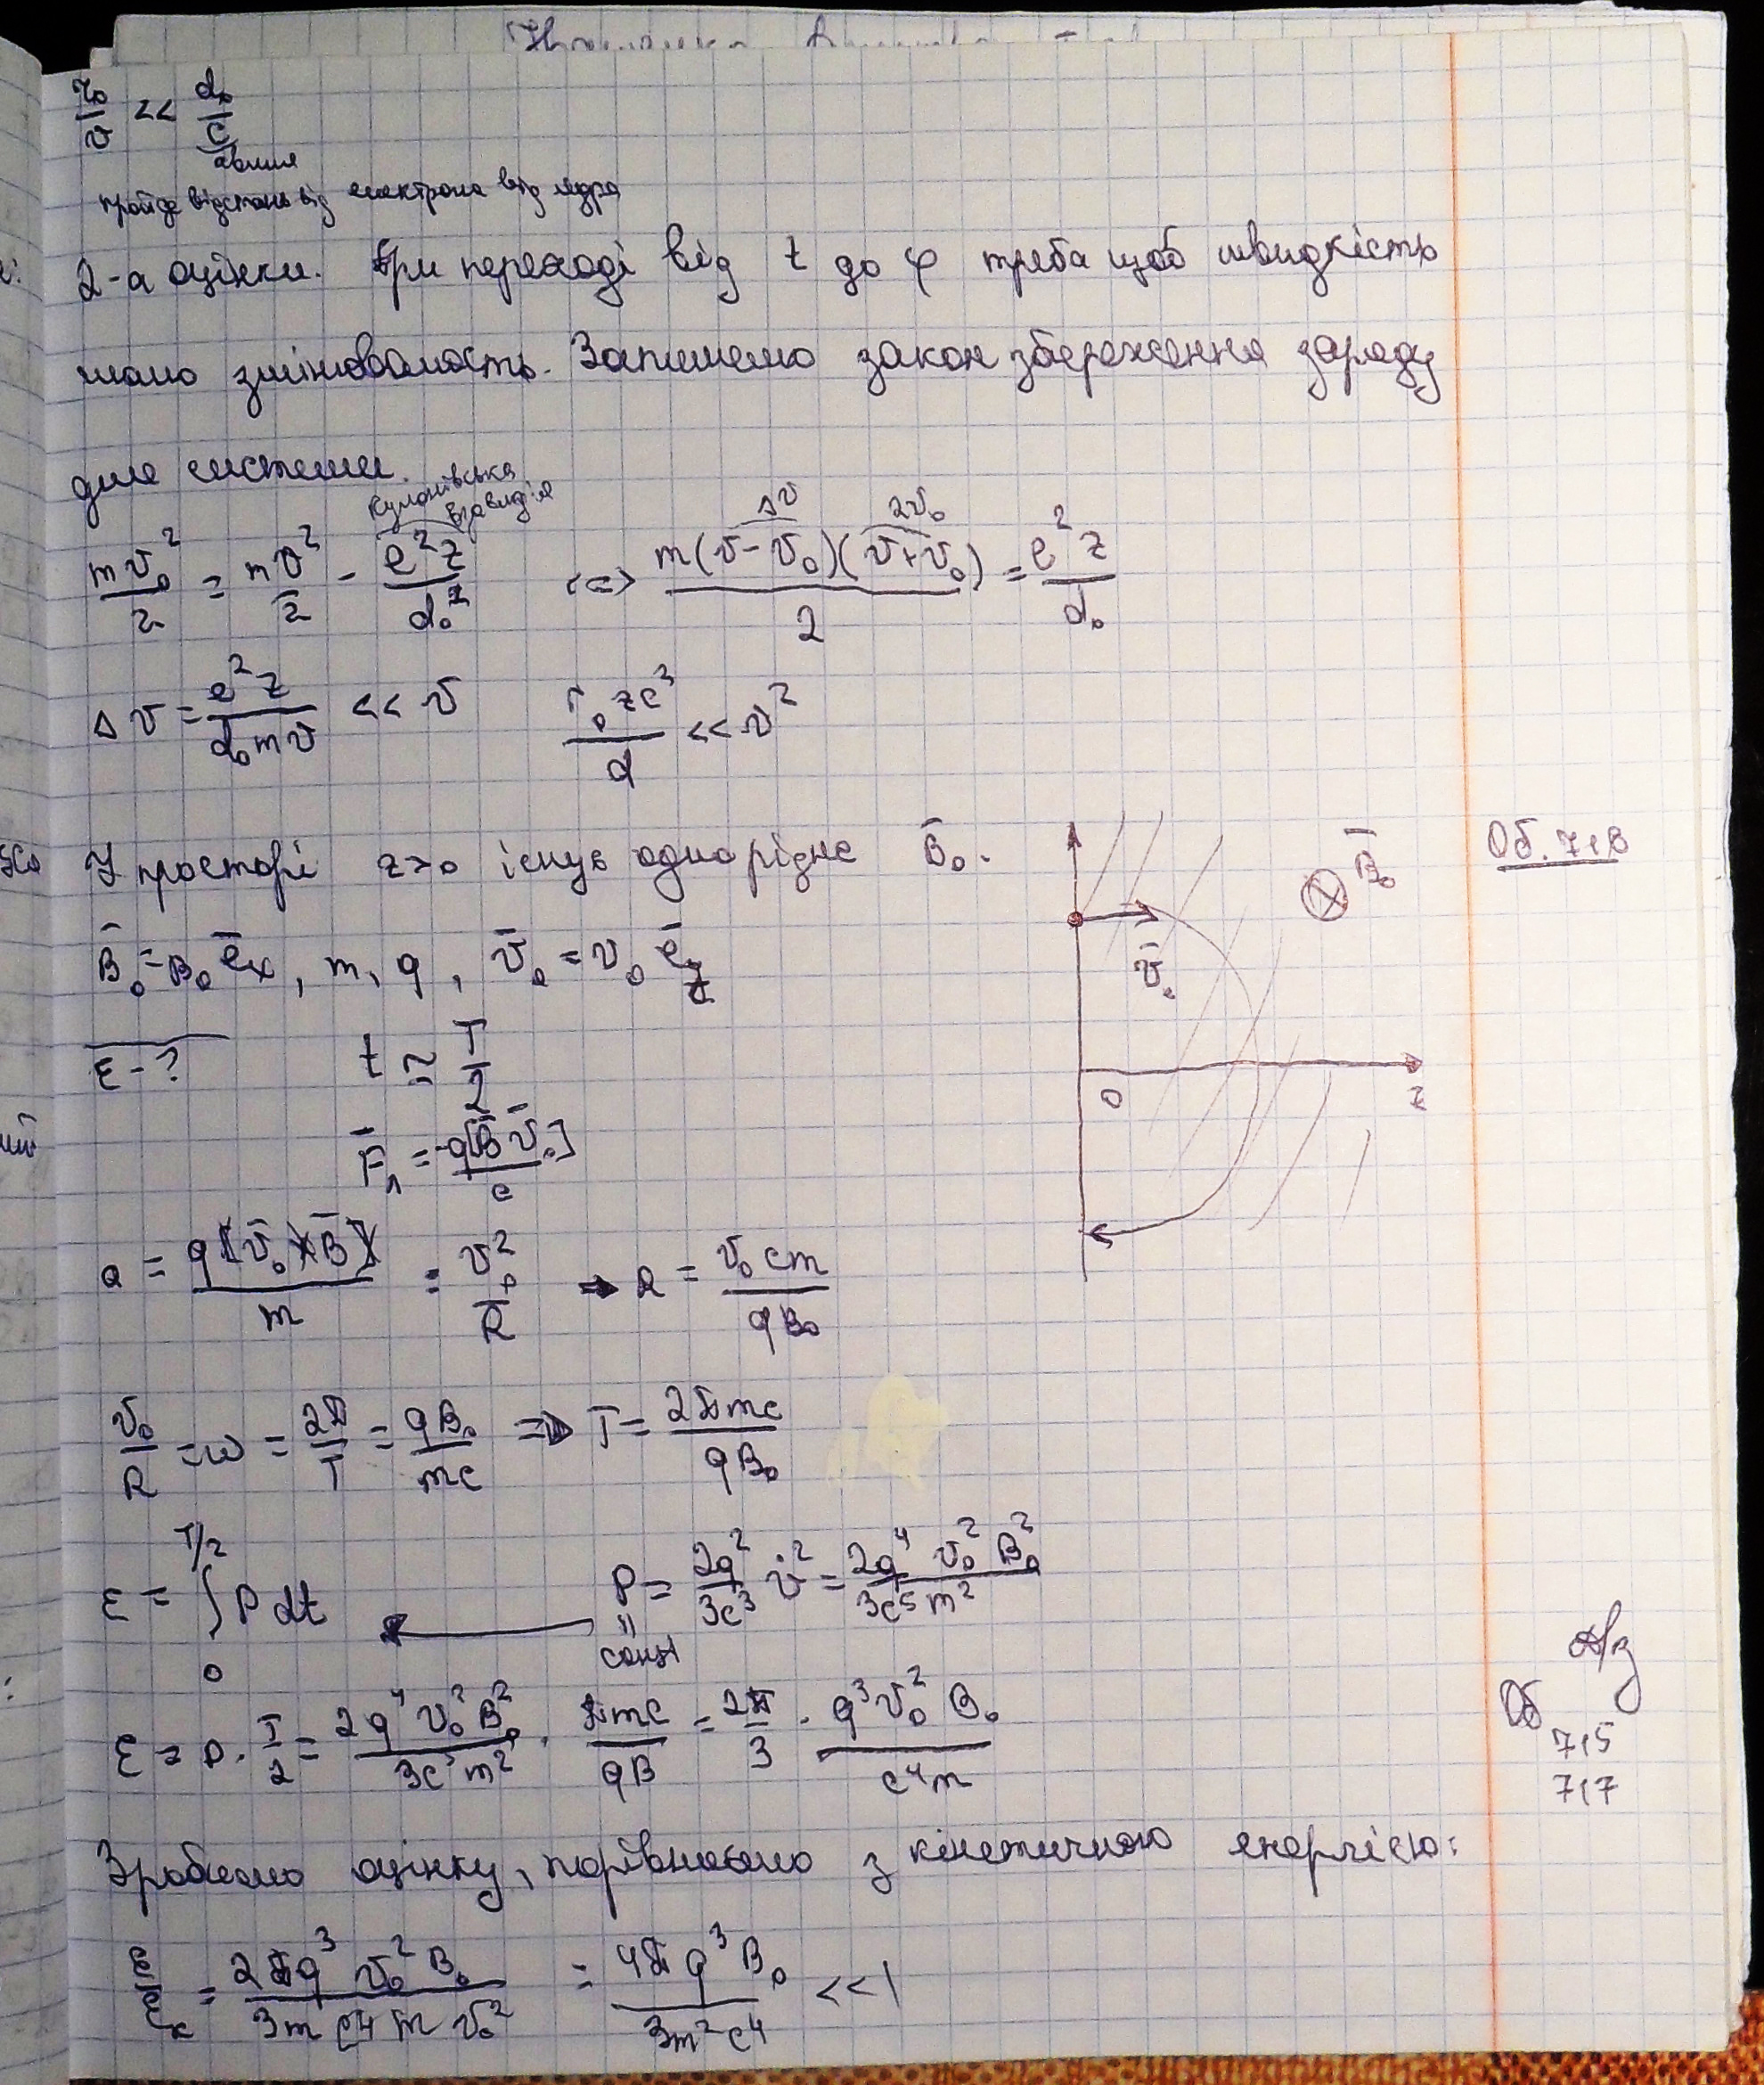 r₀/v << d₀/c
явища
пройде відстань від електрона від ядра
2-а оцінки. При переході від t до φ треба щоб швидкість
мало змінювалась. Запишемо закон збереження заряду
для системи.
кулонівська взаємодія
mv₀²/2 = mv²/2 - e²z/d₀ <=> m(v-v₀)(v+v₀)/2 = e²z/d₀
Δv 2v₀
Δv = e²z/(d₀mv) << v r₀zc³/d << v²
У просторі z>0 існує однорідне B̄₀. Об. 718
B̄₀ = B₀ēx, m, q, v̄₀ = v₀ēz
B̄₀
v̄₀
0 z
ε - ? t ≃ T/2
F̄л = -q[B̄v̄₀]/c
a = q[v̄₀×B̄]/m = v₀²/R => R = v₀cm/(qB₀)
v₀/R = ω = 2π/T = qB₀/(mc) => T = 2πmc/(qB₀)
ε = ∫₀^(T/2) P dt P = 2q²/(3c³) v̇² = 2q⁴v₀²B₀²/(3c⁵m²)
const
ε = P · T/2 = 2q⁴v₀²B₀²/(3c⁵m²) · πmc/(qB) = 2π/3 · q³v₀²B₀/(c⁴m)
д/з
Об
715
717
Зробимо оцінку, порівняємо з кінетичною енергією:
ε/εк = 2πq³v₀²B₀/(3mc⁴mv₀²) = 4πq³B₀/(3m²c⁴) << 1